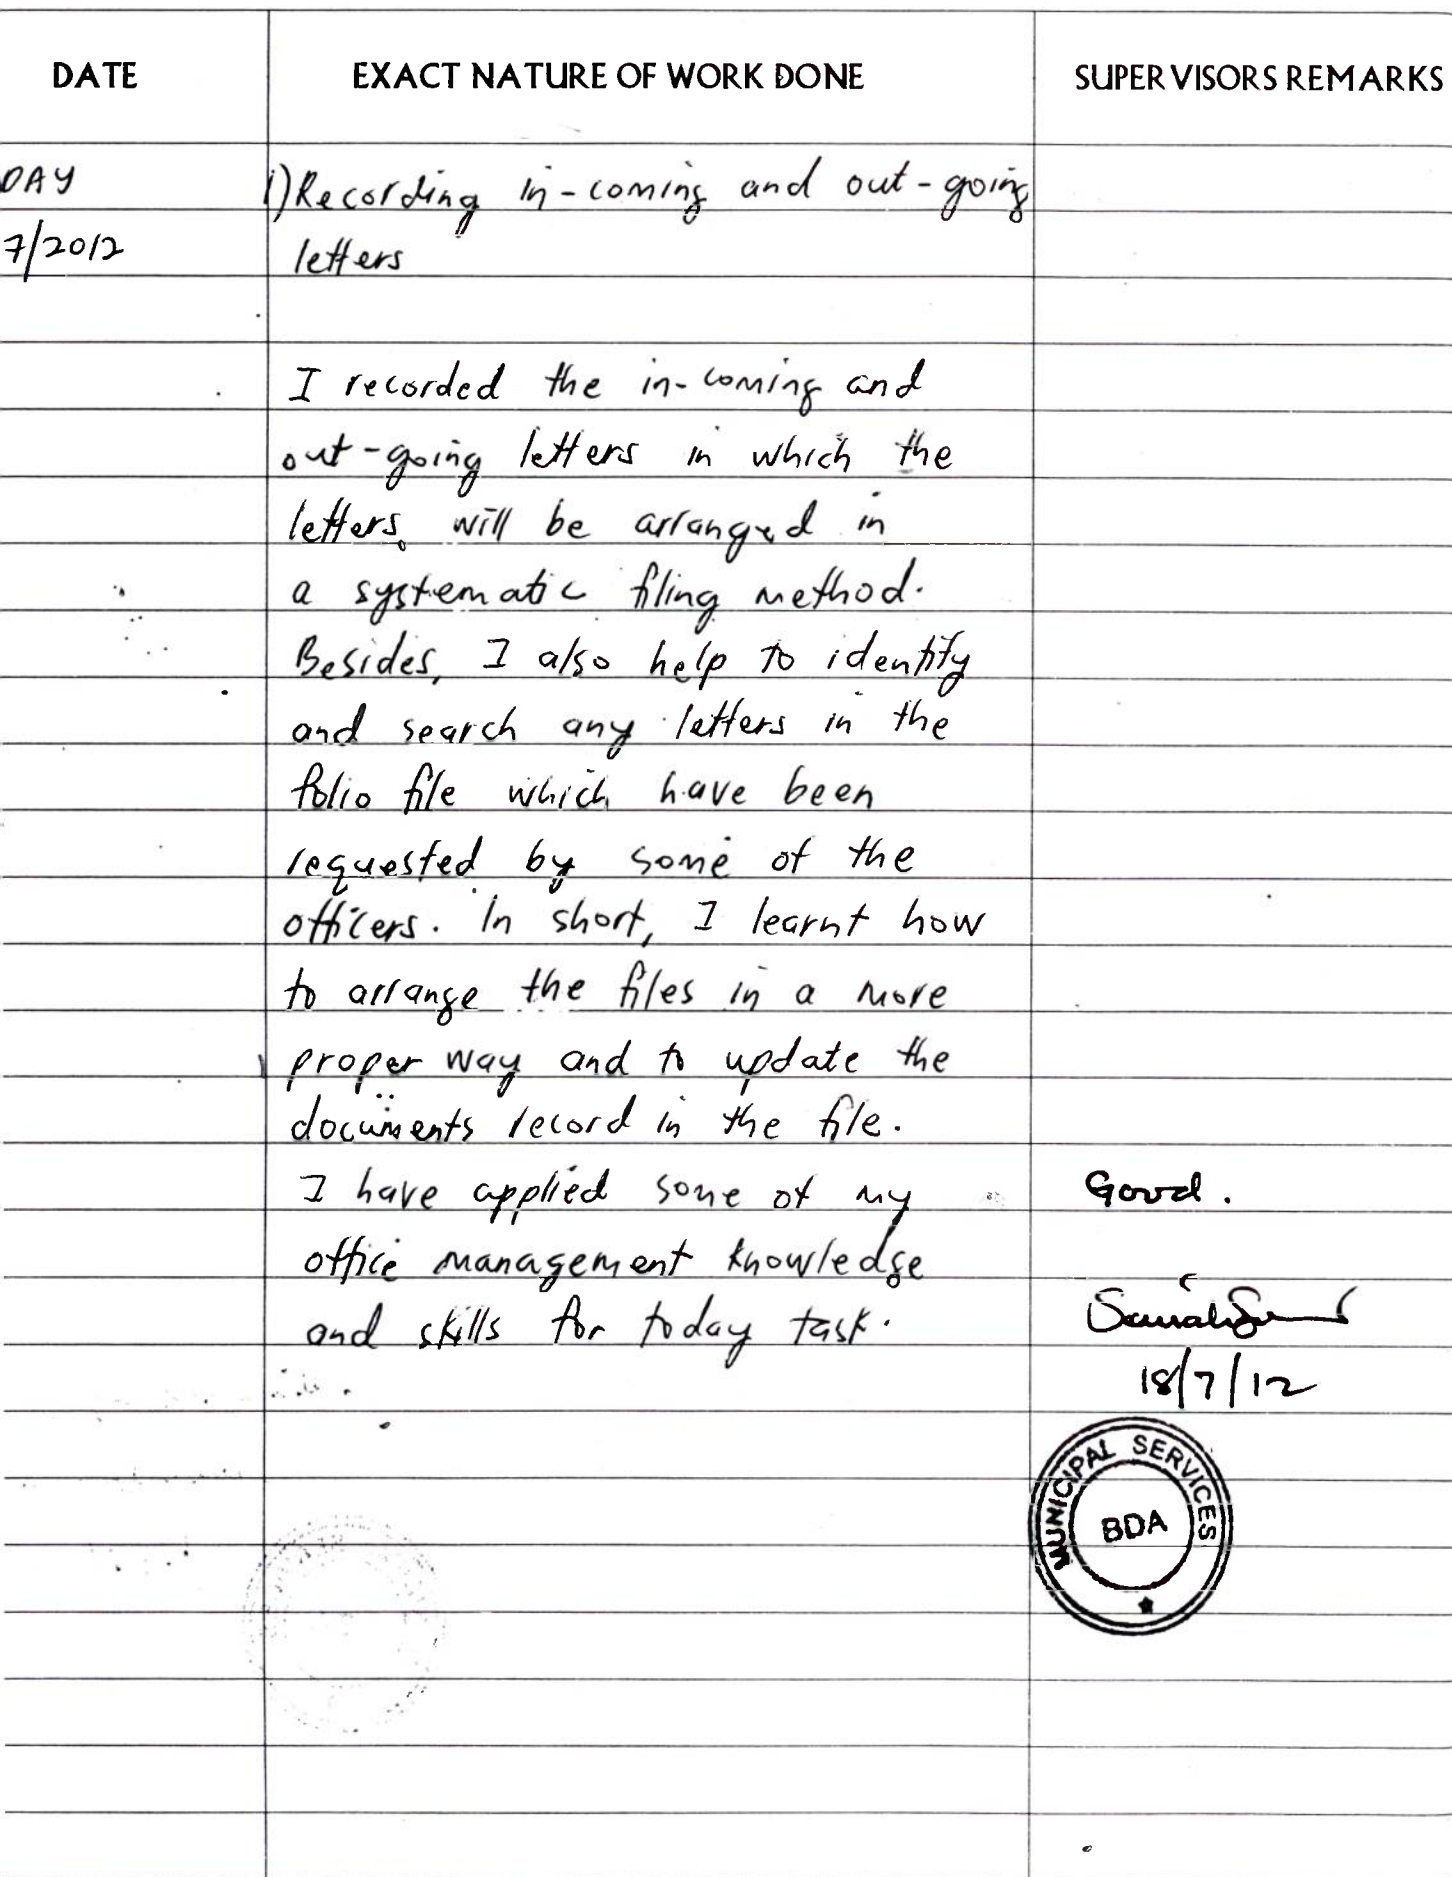 DATE EXACT NATURE OF WORK DONE SUPERVISORS REMARKS
DAY 1) Recording in-coming and out-going
7/2012 letters
I recorded the in-coming and
out-going letters in which the
letters will be arranged in
a systematic filing method.
Besides, I also help to identify
and search any letters in the
folio file which have been
requested by some of the
officers. In short, I learnt how
to arrange the files in a more
proper way and to update the
documents record in the file.
I have applied some of my Good.
office management knowledge
and skills for today task.
18/7/12
MUNICIPAL SERVICES
BDA